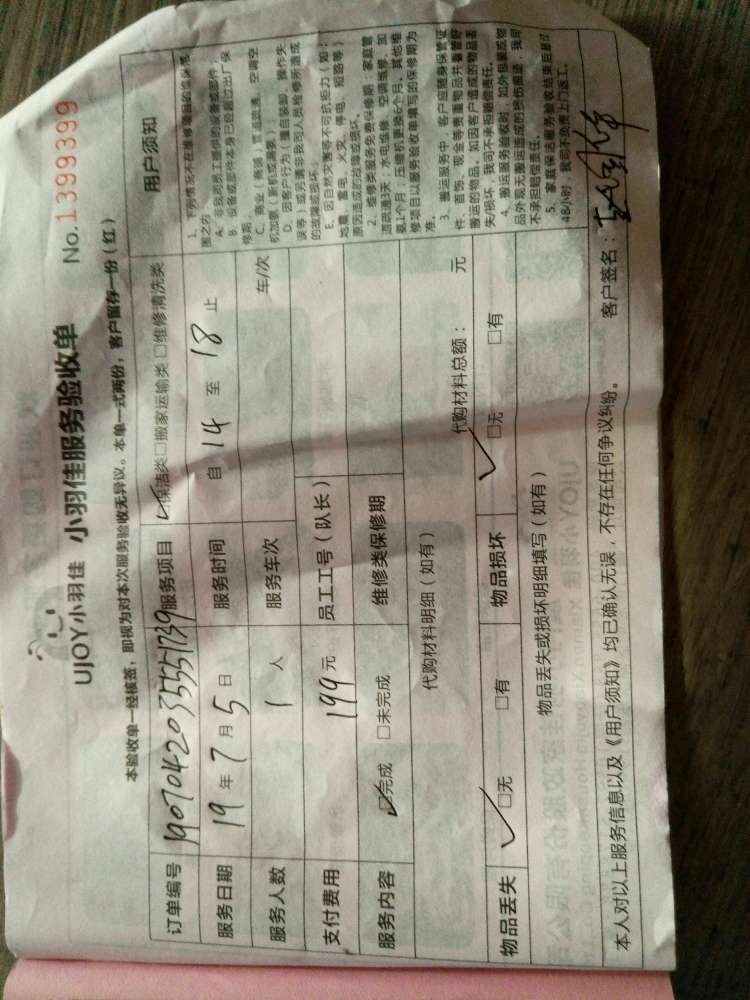 UJOY小羽佳 小羽佳服务验收单
No.1399399
本验收单一经核签，即视为对本次服务验收无异议。本单一式两份，客户留存一份（红）
订单编号 1907042035551739 服务项目 ☑保洁类 □搬家运输类 □维修清洗类
服务日期 19 年 7 月 5 日 服务时间 自 14 至 18 止
服务人数 1 人 服务车次 车/次
支付费用 199 元 员工工号（队长）
服务内容 ☑完成 □未完成 维修类保修期
代购材料明细（如有） 代购材料总额： 元
物品丢失 ☑无 □有 物品损坏 ☑无 □有
物品丢失或损坏明细填写（如有）
用户须知
1、下列情况不在维修项目的质保范
围之内：
A、非我司员工提供的设备或部件；
B、设备或部件本身已经超过出厂保
修期；
C、商业（商铺）管道疏通、空调空
机加氨（新机或漏氨）；
D、因客户行为（擅自装卸、操作失
误等）或另请非我司人员检修所造成
的故障或损坏；
E、因自然灾害等不可抗拒力（如：
地震、雷电、火灾、停电、短路等）
原因造成的故障或损坏。
2、维修类服务免费保修期：家庭管
道疏通3天；水电装修、空调维修、加
氨1个月；压缩机更换6个月。其他维
修项目以服务验收单填写的保修期为
准。
3、搬运服务中，客户应随身保管证
件、首饰、现金等贵重物品并妥善
搬运的物品，如因客户造成的物品丢
失/损坏，我司不承担赔偿责任。
4、搬运服务验收时，如外包装或物
品外观无搬运造成的损伤痕迹，我司
不承担赔偿责任。
5、家庭保洁服务验收结束后超过
48小时，我司不负责上门返工。
本人对以上服务信息以及《用户须知》均已确认无误，不存在任何争议纠纷。 客户签名：